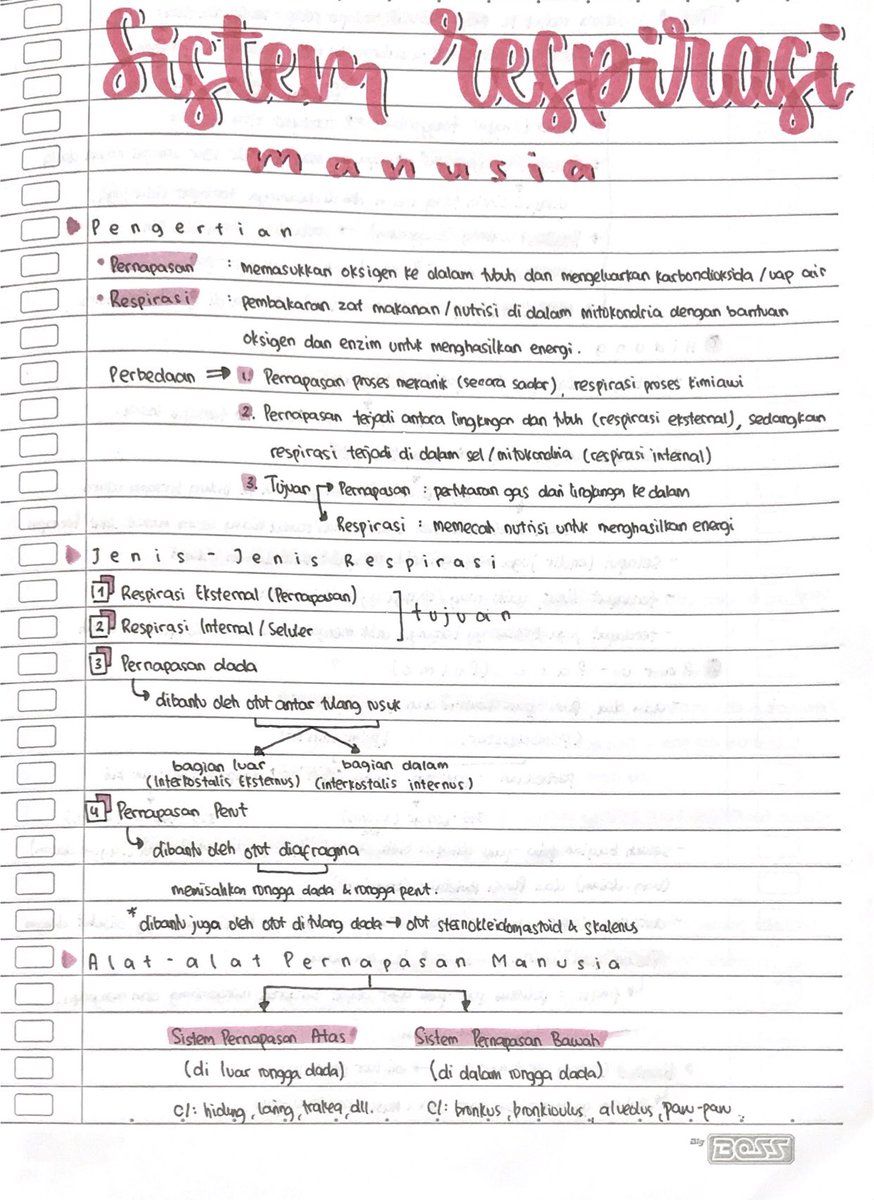 Sistem respirasi
manusia
Pengertian
• Pernapasan : memasukkan oksigen ke dalam tubuh dan mengeluarkan karbondioksida / uap air
• Respirasi : pembakaran zat makanan / nutrisi di dalam mitokondria dengan bantuan
oksigen dan enzim untuk menghasilkan energi.
Perbedaan ⇒ 1. Pernapasan proses mekanik (secara sadar), respirasi proses kimiawi
2. Pernapasan terjadi antara lingkungan dan tubuh (respirasi eksternal), sedangkan
respirasi terjadi di dalam sel / mitokondria (respirasi internal)
3. Tujuan → Pernapasan : pertukaran gas dari lingkungan ke dalam
→ Respirasi : memecah nutrisi untuk menghasilkan energi
Jenis - Jenis Respirasi
1 Respirasi Eksternal (Pernapasan)
tujuan
2 Respirasi Internal / Seluler
3 Pernapasan dada
dibantu oleh otot antar tulang rusuk
bagian luar bagian dalam
(Interkostalis Eksternus) (interkostalis internus)
4 Pernapasan Perut
dibantu oleh otot diafragma
memisahkan rongga dada & rongga perut.
* dibantu juga oleh otot di tulang dada → otot sternokleidomastoid & skalenus
Alat - alat Pernapasan Manusia
Sistem Pernapasan Atas Sistem Pernapasan Bawah
(di luar rongga dada) (di dalam rongga dada)
C/: hidung, laring, trakea, dll. C/: bronkus, bronkiolus, alveolus, paru-paru
Big BOSS